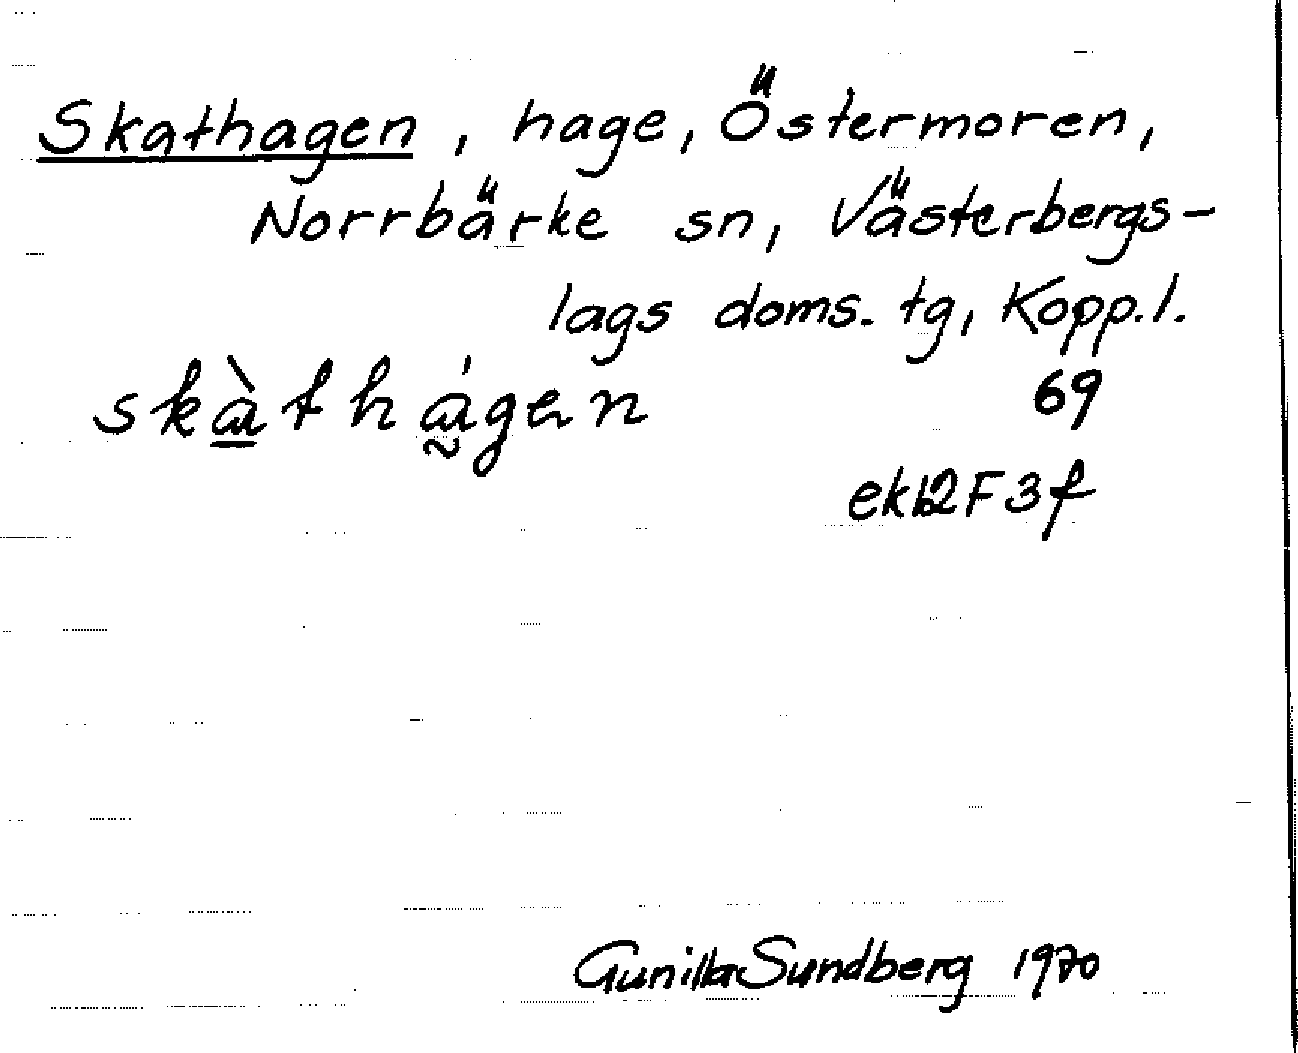 Skathagen, hage, Östermoren,
Norrbärke sn, Västerbergs-
lags doms. tg, Kopp. l.
skàthágen 69
ekb2F3f
Gunilla Sundberg 1970